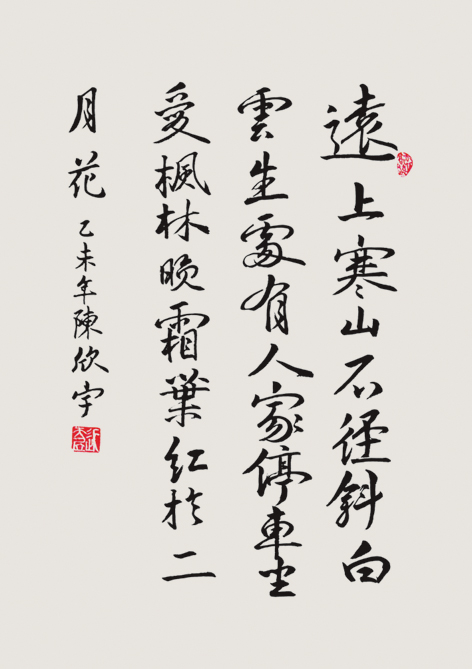 遠上寒山石径斜白
雲生處有人家停車坐
愛楓林晚霜葉紅於二
月花
乙未年陳欣宇